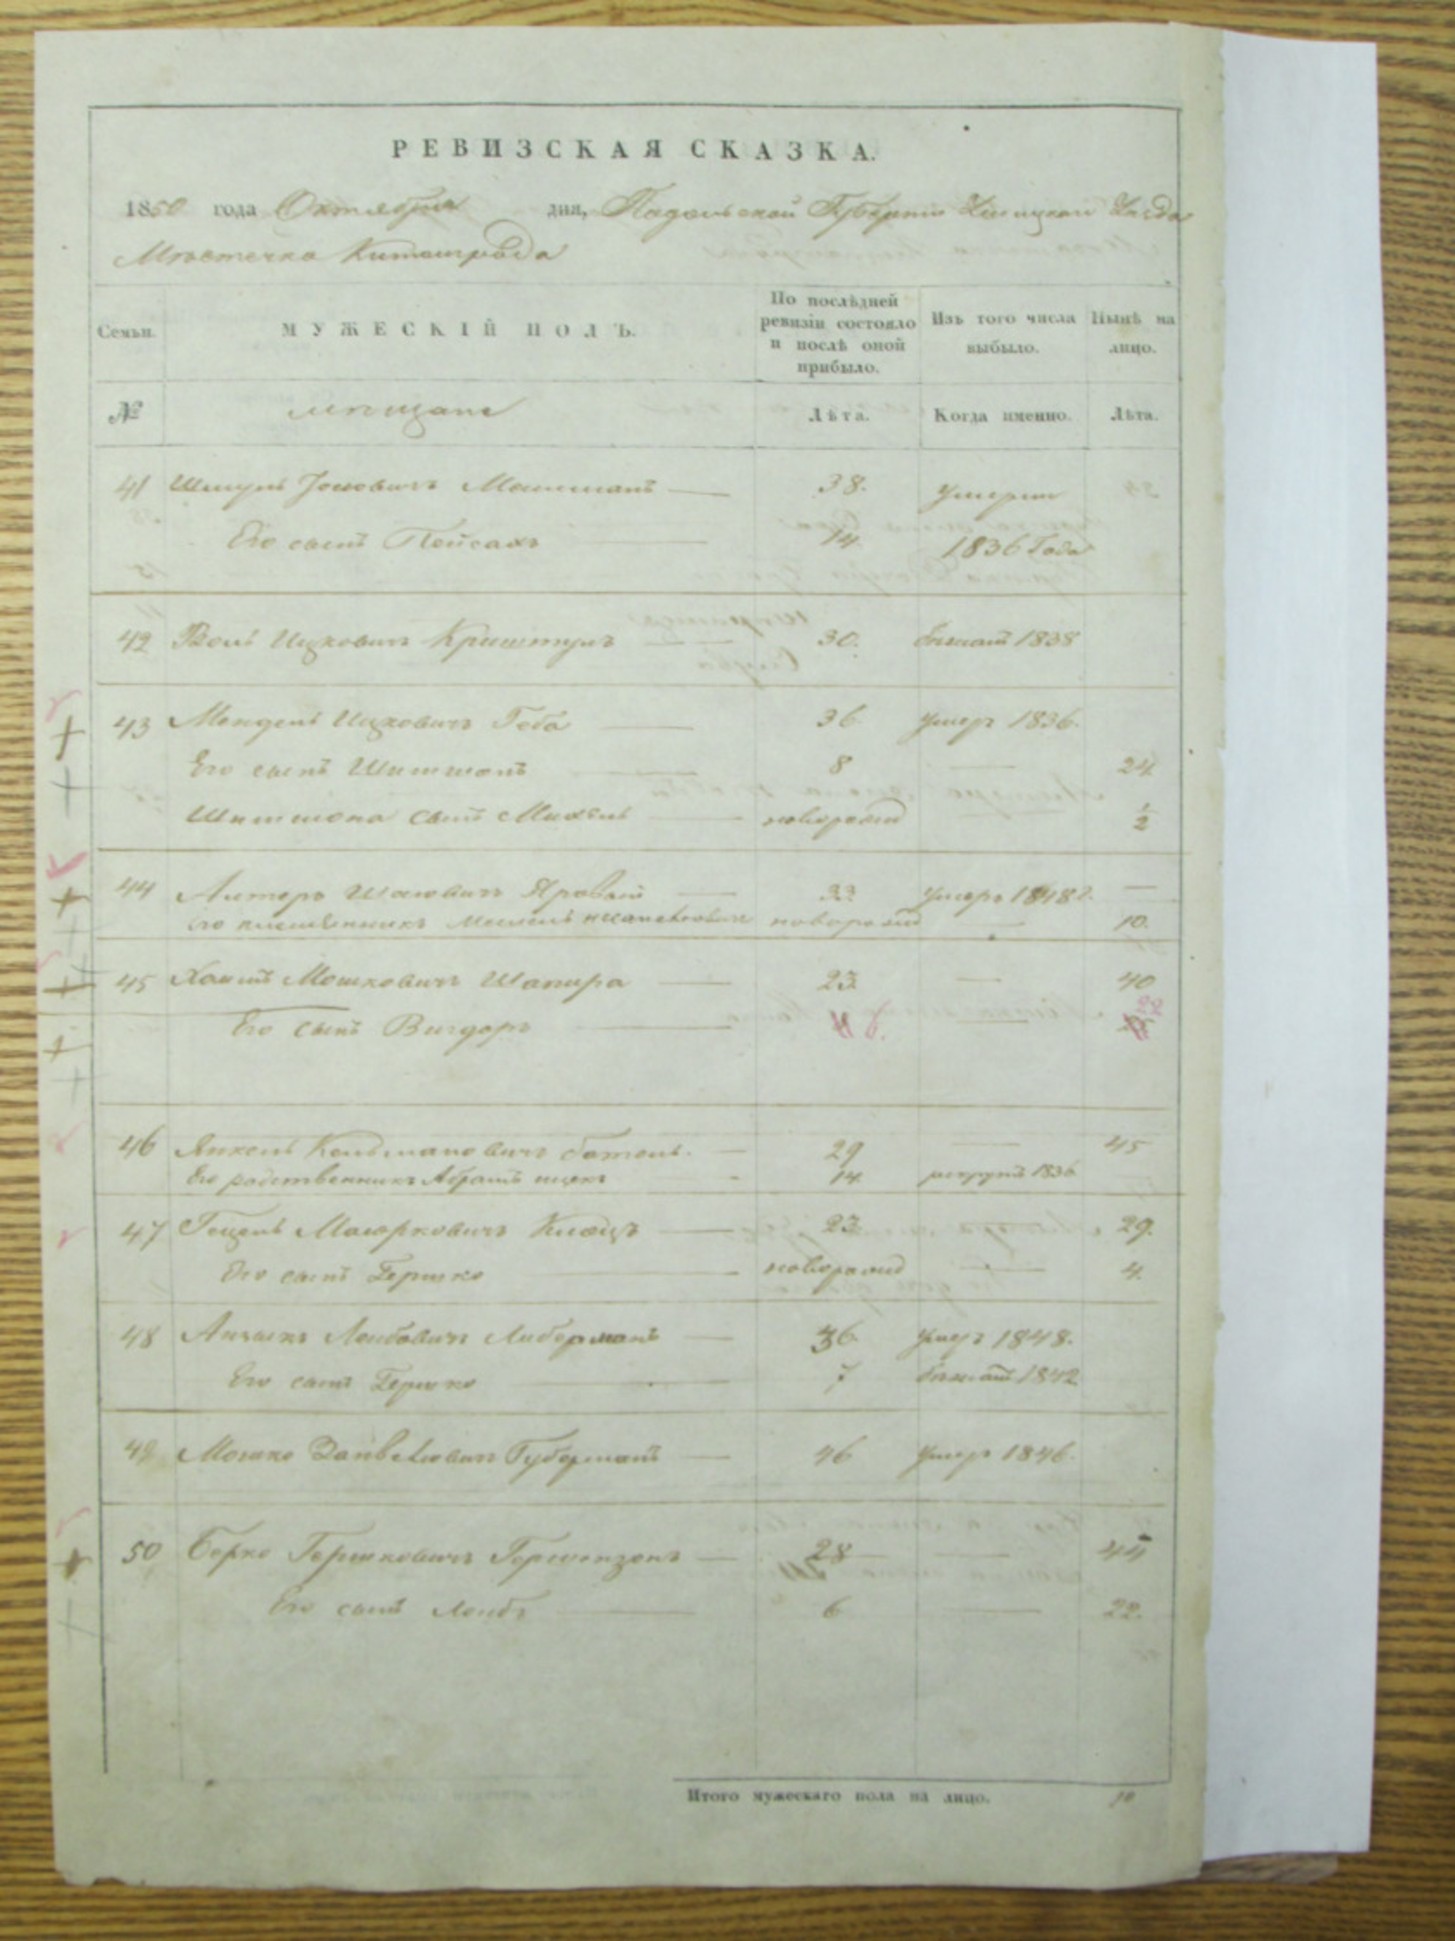 РЕВИЗСКАЯ СКАЗКА.
1850 года Октября дня, Подольской Губернии Ушицкого Уезда
Местечка Китайгрода
Семьи. МУЖЕСКІЙ ПОЛЪ. По послѣдней ревизіи состояло и послѣ оной прибыло. Изъ того числа выбыло. Нынѣ на лицо.
№ мещане Лѣта. Когда именно. Лѣта.
41 Шмуль 38. умерли
Его сынъ Пейсахъ 14 1836 Года
42 Волъ Ицковичъ 30. бежалъ 1838
43 Мендель Ицковичъ Геба 36 умеръ 1836.
Его сынъ Шимшонъ 8 — 24
Шимшона сынъ Михель новорожд 1/2
44 Алтеръ Яровый 33 умеръ 1848 г. —
его племянникъ новорожд — 10.
45 Хаимъ Мошковичъ Шапира 23 — 40
Его сынъ Вигдоръ 22
46 Янкель Кельмановичъ 29 — 45
Его родственникъ Абрамъ 14 рекрутъ 1836
47 Гецель Маюрковичъ 23 — 29.
Его сынъ Гершко новорожд — 4.
48 Анчель Лейбовичъ Либерманъ 36 умеръ 1848.
Его сынъ Гершко 7 бежалъ 1842
49 Мошко Губерманъ 46 умеръ 1846.
50 Берко Гершковичъ Гершензонъ 28 — 44
Его сынъ Лейбъ 6 — 22.
Итого мужескаго пола на лицо. 10